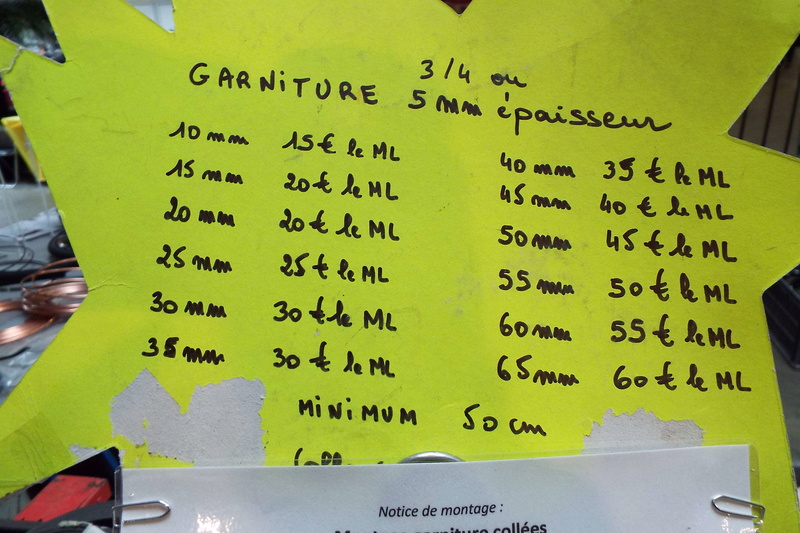 GARNITURE 3/4 ou
5 mm épaisseur
10 mm 15 € le ML
15 mm 20 € le ML
20 mm 20 € le ML
25 mm 25 € le ML
30 mm 30 € le ML
35 mm 30 € le ML
40 mm 35 € le ML
45 mm 40 € le ML
50 mm 45 € le ML
55 mm 50 € le ML
60 mm 55 € le ML
65 mm 60 € le ML
MINIMUM 50 cm
Notice de montage :
garniture collées